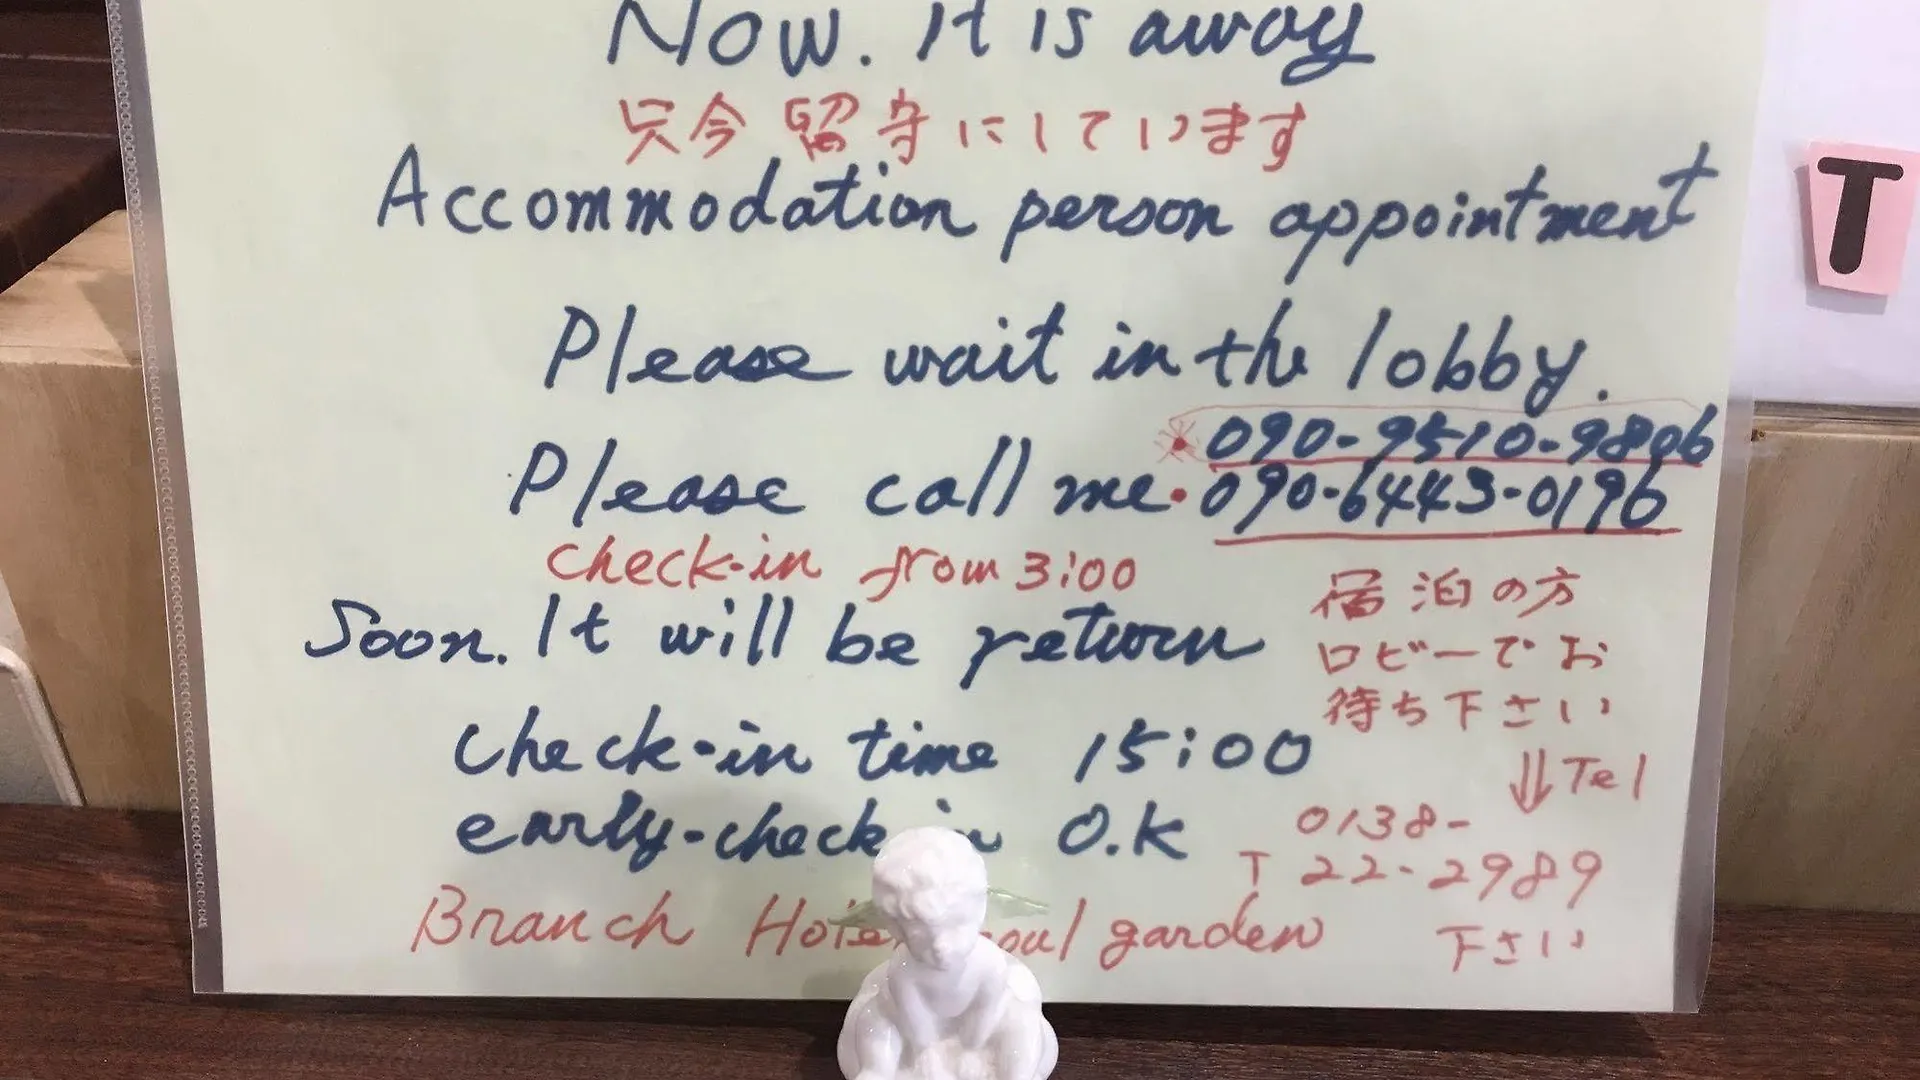 Now. It is away
只今留守にしています
Accommodation person appointment
Please wait in the lobby.
090-9510-9806
Please call me. 090-6443-0196
check-in from 3:00
Soon. It will be return
宿泊の方
ロビーでお
待ち下さい
check-in time 15:00
⇓ Tel
early-check in O.K
0138-
T 22-2989
下さい
Branch Hotel garden
T